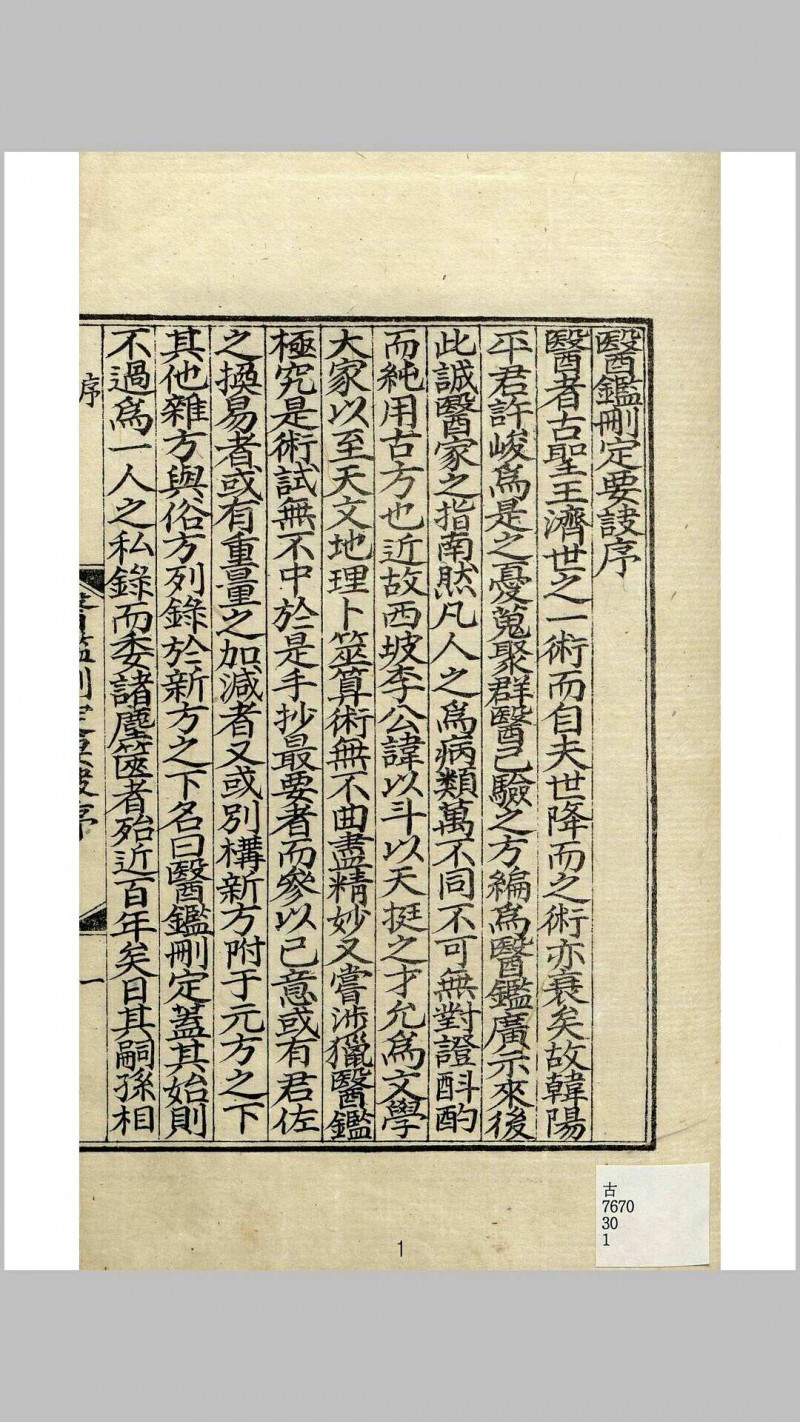 醫鑑刪定要訣序
醫者古聖王濟世之一術而自夫世降而之術亦衰矣故韓陽
平君許峻爲是之憂蒐聚群醫已驗之方編爲醫鑑廣示來後
此誠醫家之指南然凡人之爲病類萬不同不可無對證斟酌
而純用古方也近故西坡李公諱以斗以天挺之才允爲文學
大家以至天文地理卜筮算術無不曲盡精妙又嘗涉獵醫鑑
極究是術試無不中於是手抄最要者而參以己意或有君佐
之換易者或有重量之加減者又或別構新方附于元方之下
其他雜方與俗方列錄於新方之下名曰醫鑑刪定蓋其始則
不過爲一人之私錄而委諸塵篋者殆近百年矣日其嗣孫相
序
醫鑑刪定要訣序
一
古
7670
30
1
1